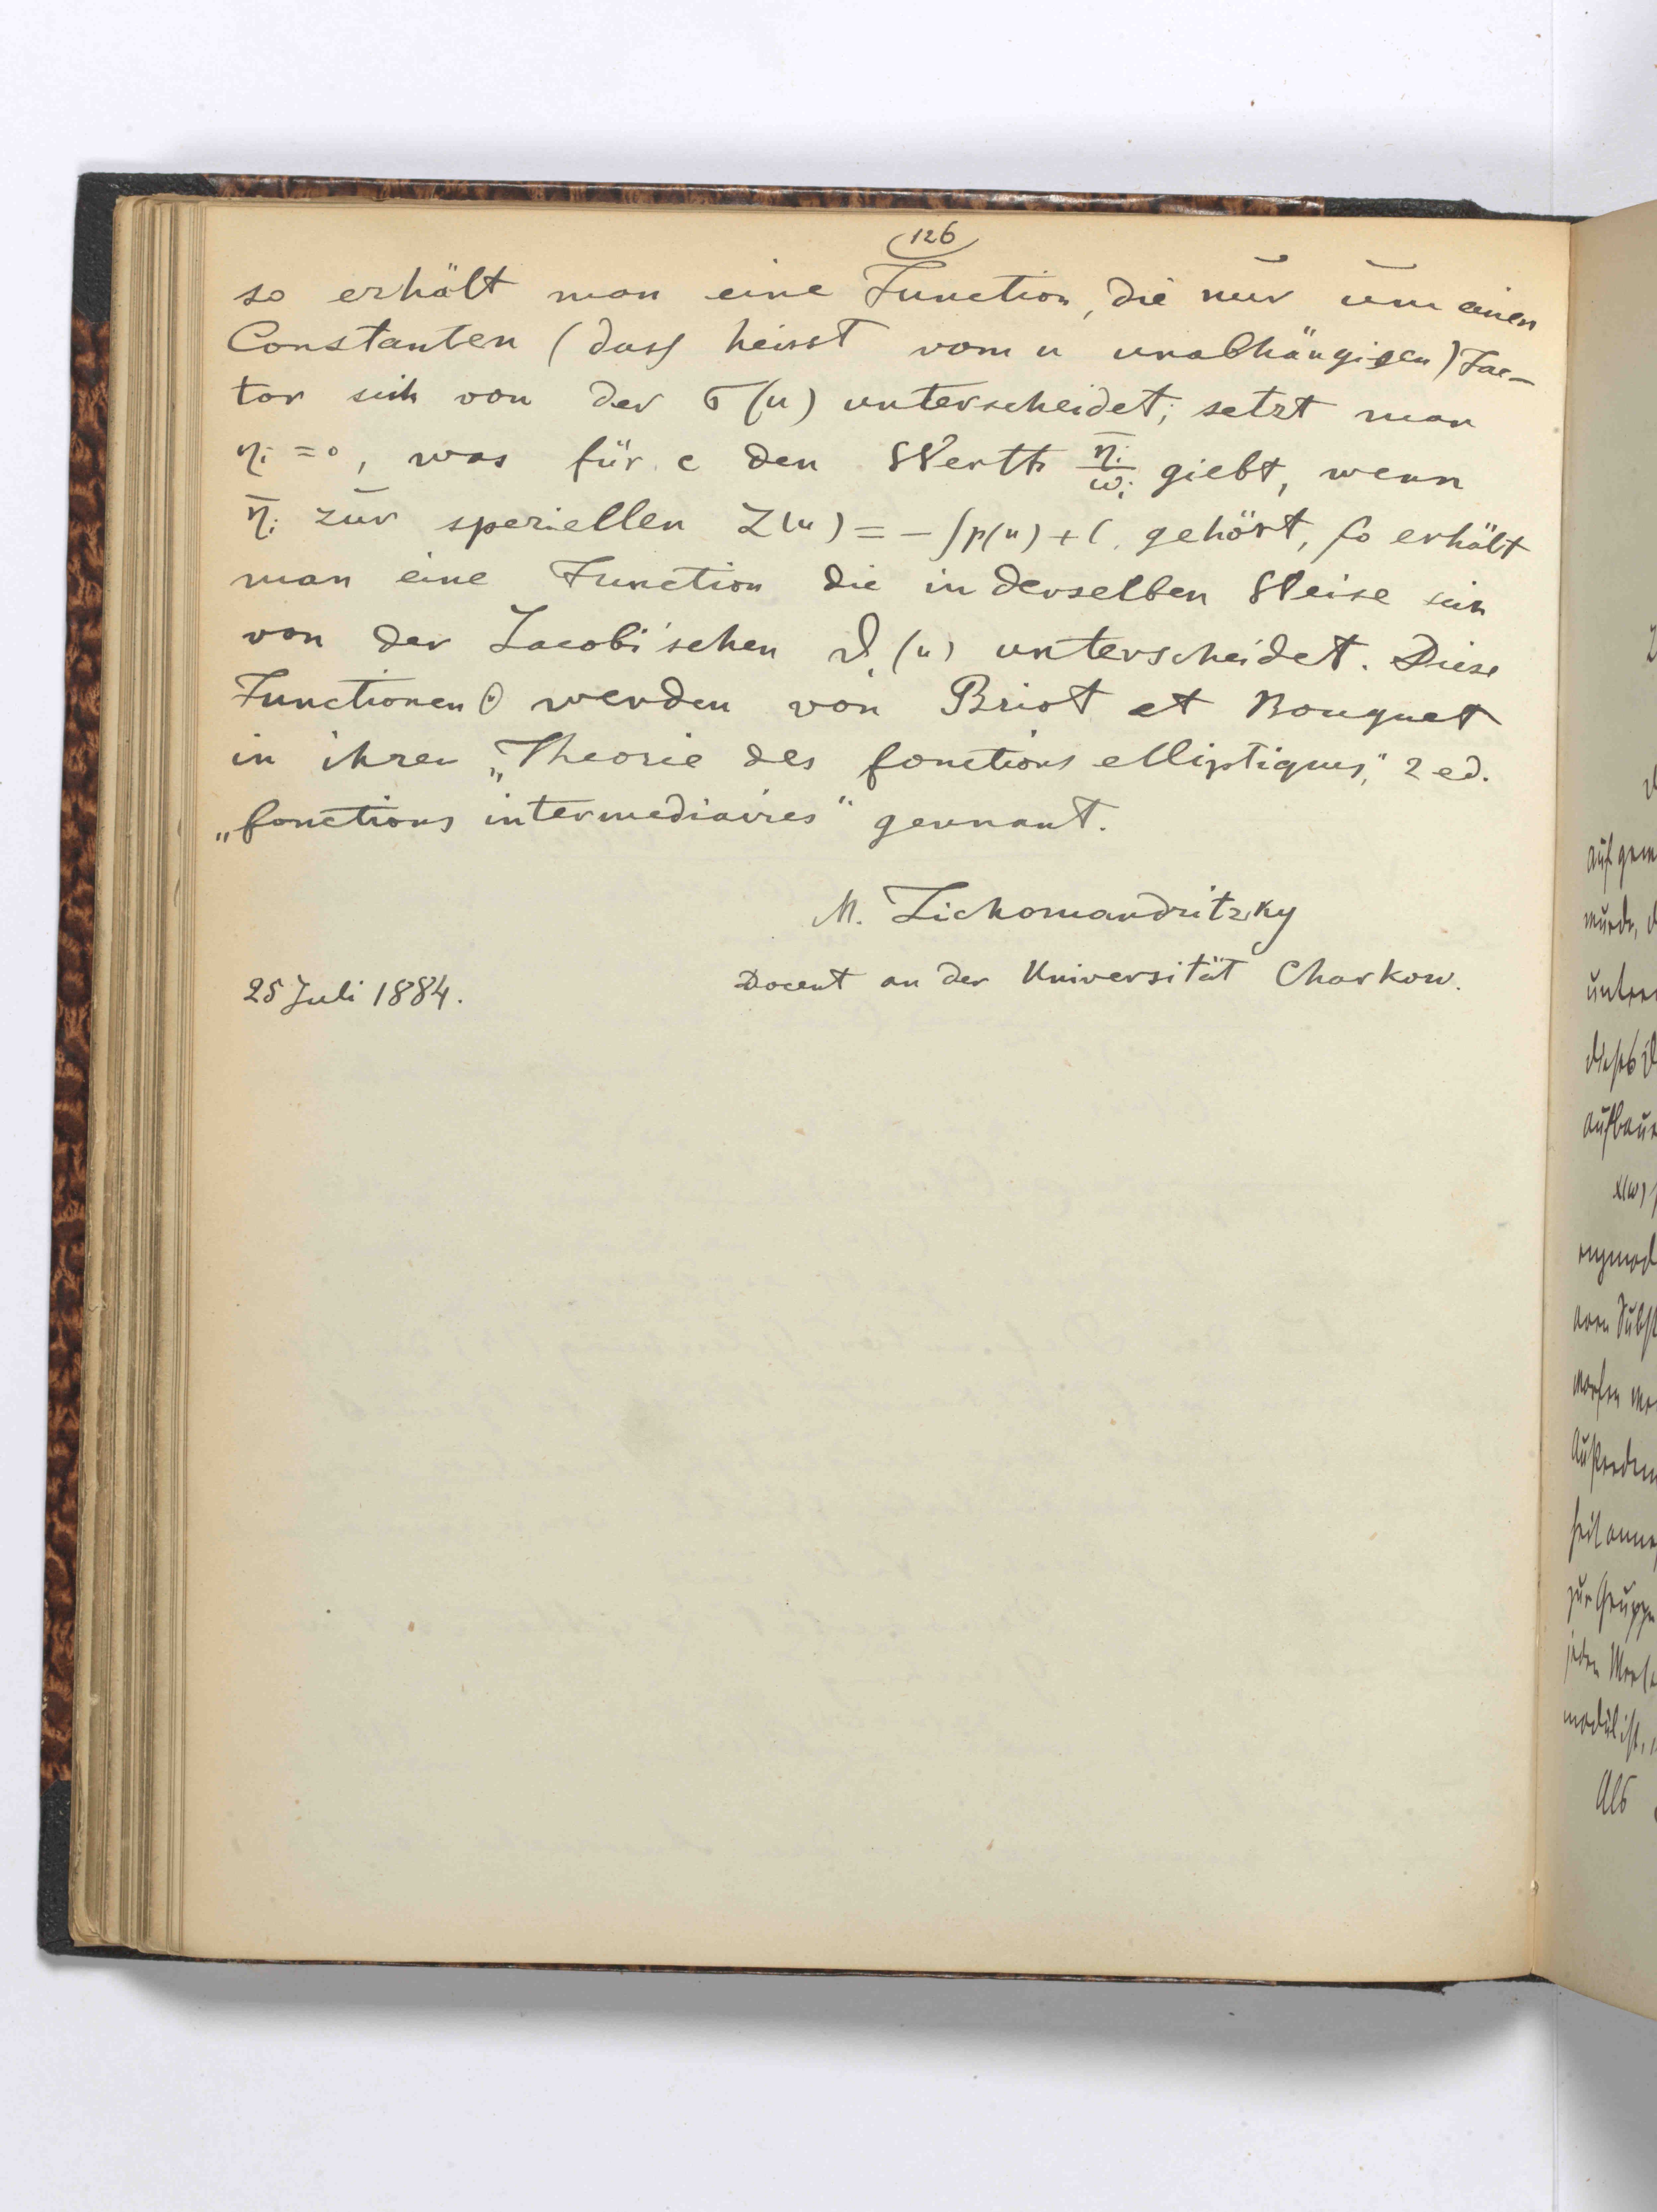 126
so erhält man eine Function, die nur um einen
Constanten (dass heisst vom u unabhängigen) Fac-
tor sich von der σ(u) unterscheidet; setzt man
ηᵢ = 0, was für c den Werth η̄ᵢ/ωᵢ giebt, wenn
η̄ᵢ zur speziellen Z(u) = -∫p(u) + C. gehört, so erhält
man eine Function die in derselben Weise sich
von der Jacobi'schen ϑ₁(u) unterscheidet. Diese
Functionen werden von Briot et Bouquet
in ihrer „Theorie des fonctions elliptiques," 2 ed.
„fonctions intermediaires" gennant.
M. Tichomandritzky
25 Juli 1884. Docent an der Universität Charkow.
aufgem
wurde, d
unter
dieses
aufbau
x(ω)
seit anne
zur Gruppe
jeden
modul ist,
Als